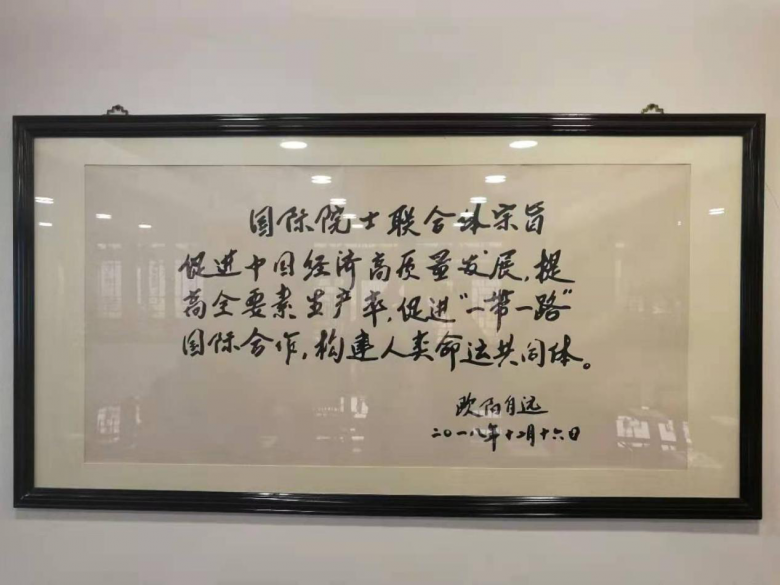 国际院士联合体宗旨
促进中国经济高质量发展，提
高全要素生产率，促进“一带一路”
国际合作，构建人类命运共同体。
欧阳自远
二〇一八年十二月十六日